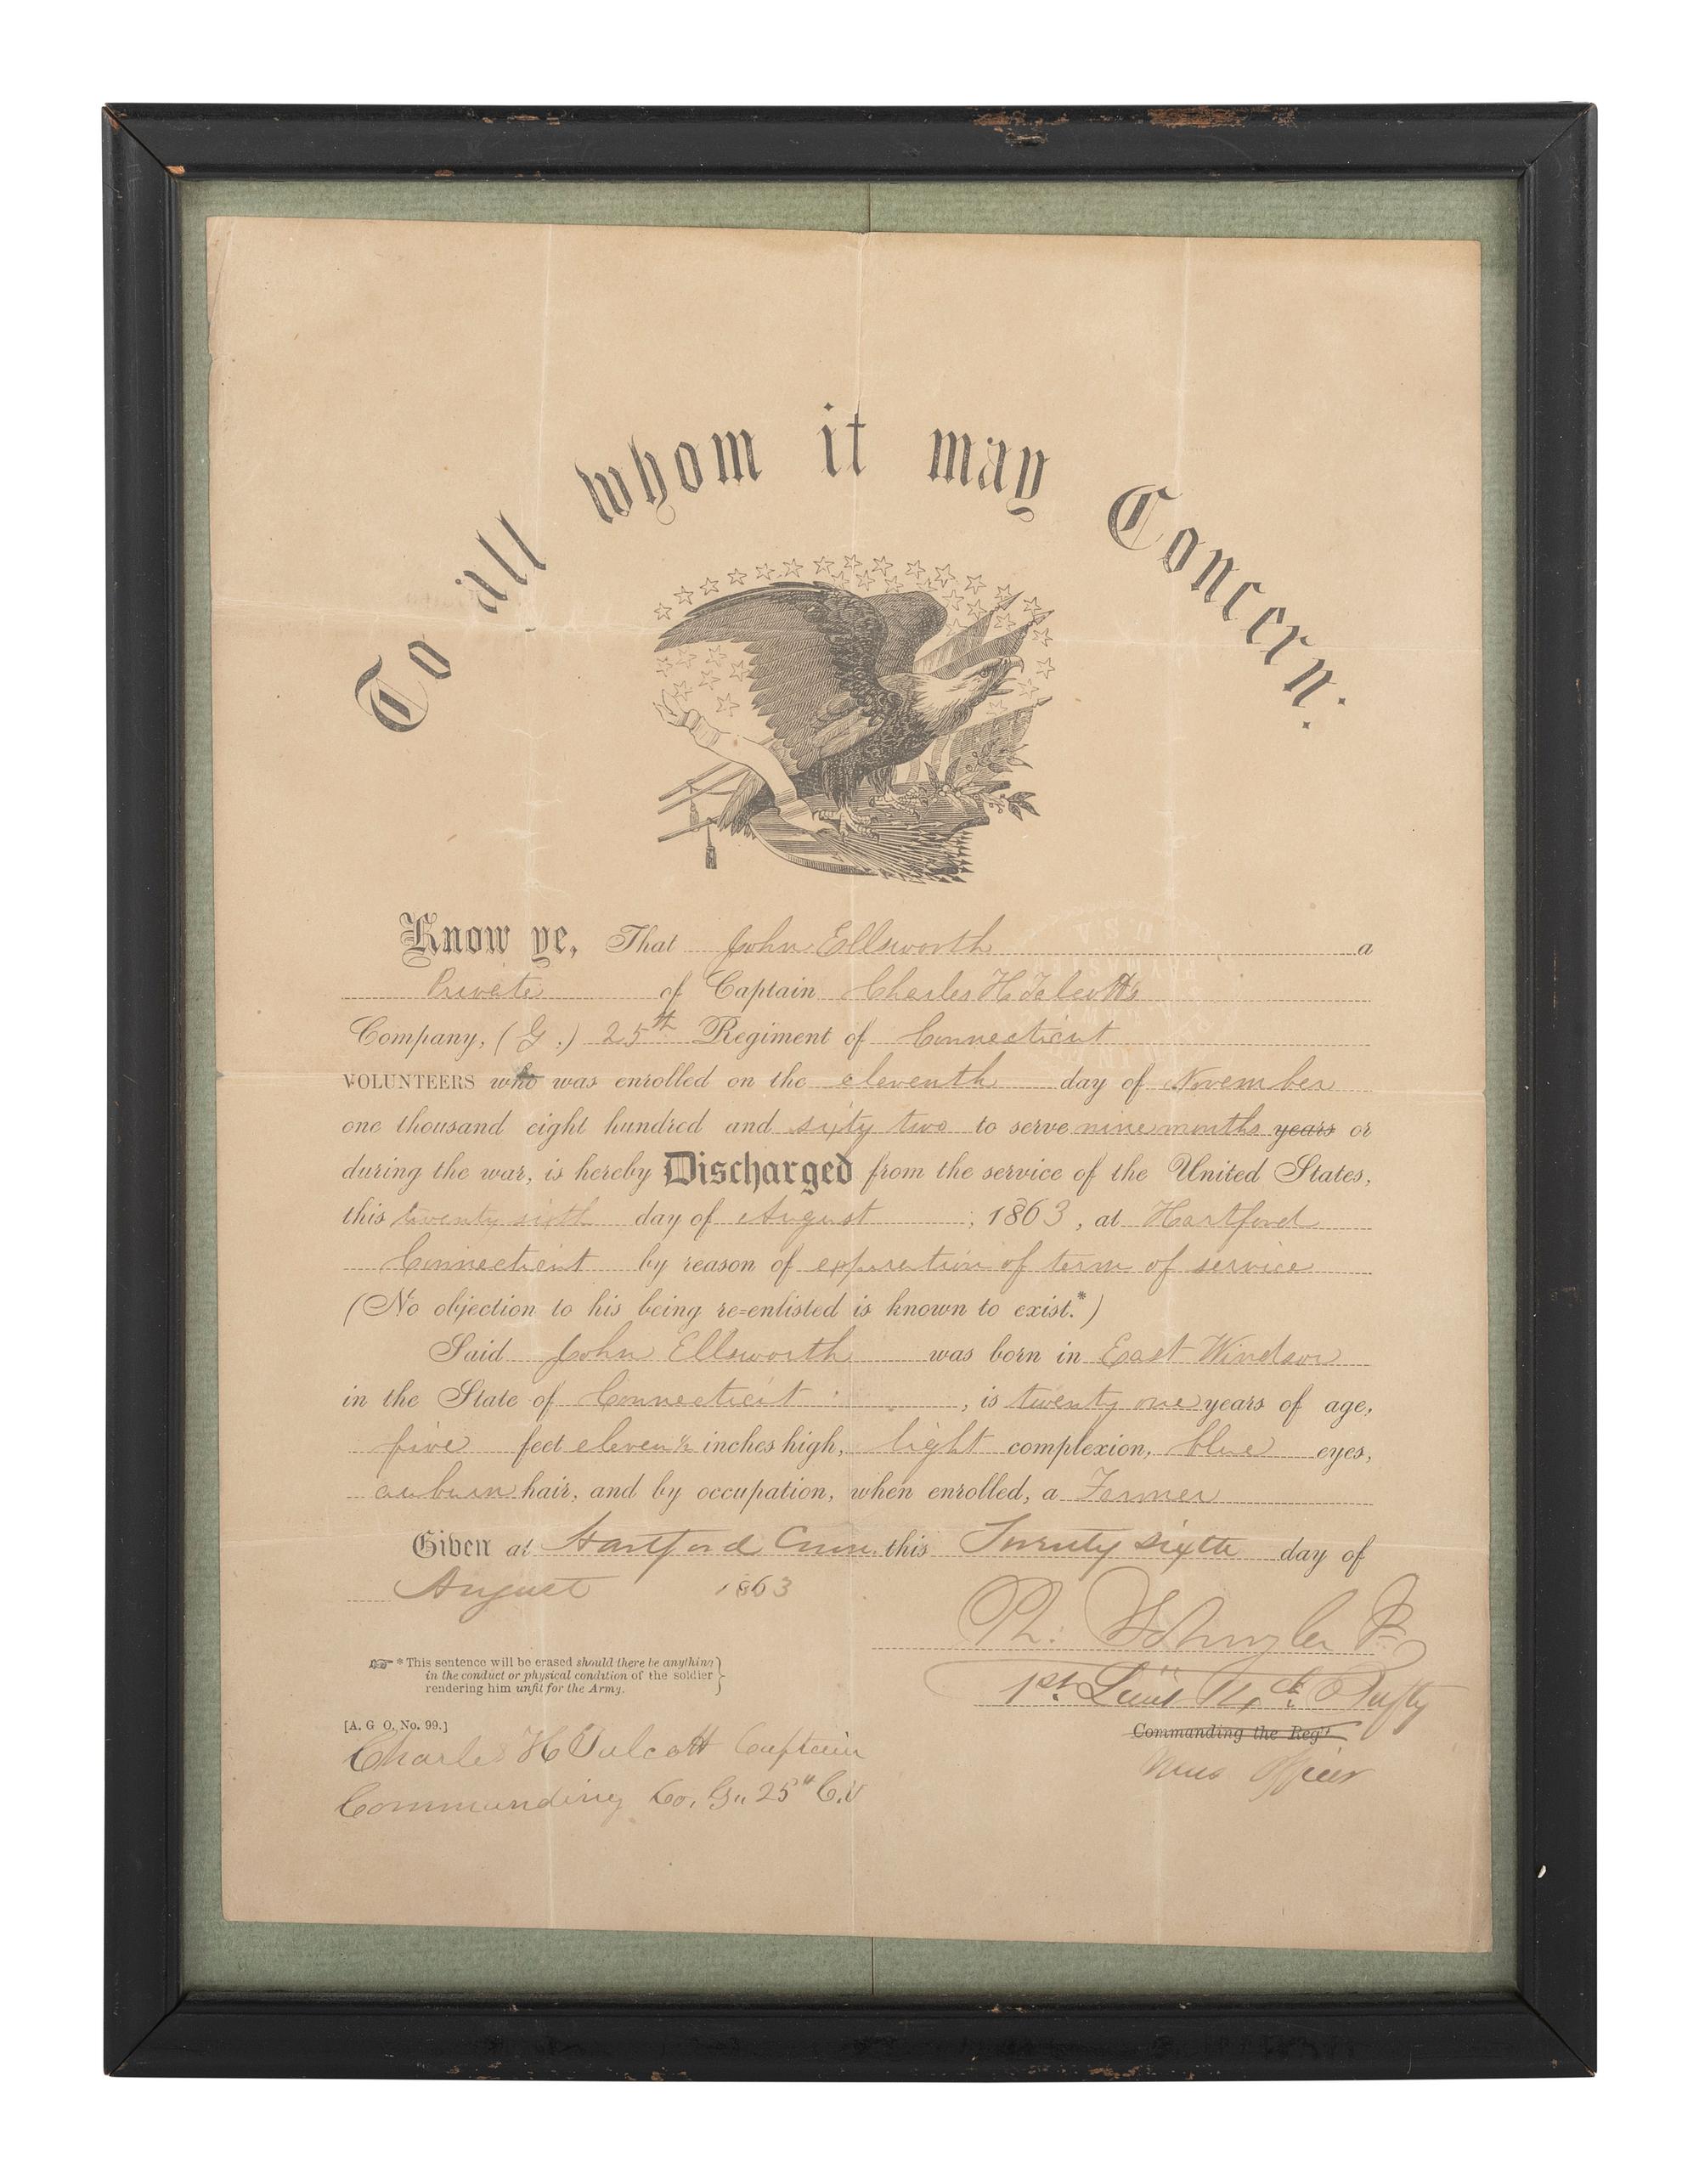 To all whom it may Concern:
Know ye, That John Ellsworth a
Private of Captain Charles H. Talcott's
Company, (G,) 25th Regiment of Connecticut
VOLUNTEERS who was enrolled on the eleventh day of November
one thousand eight hundred and sixty two to serve nine months years or
during the war, is hereby Discharged from the service of the United States,
this twenty sixth day of August, 1863, at Hartford
Connecticut by reason of expiration of term of service
(No objection to his being re=enlisted is known to exist.*)
Said John Ellsworth was born in East Windsor
in the State of Connecticut, is twenty one years of age,
five feet eleven ½ inches high, light complexion, blue eyes,
auburn hair, and by occupation, when enrolled, a Farmer
Given at Hartford Conn. this Twenty sixth day of
August 1863
* This sentence will be erased should there be anything
in the conduct or physical condition of the soldier
rendering him unfit for the Army.
1st Lieut 14 Infty
[A. G. O. No. 99.]
Commanding the Reg't
Charles H Talcott Captain
Officer
Commanding Co. G. 25th C.V